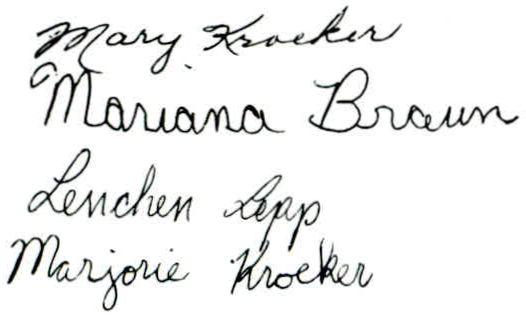 Mary Kroeker
Mariana Braun
Lenchen Lepp
Marjorie Kroeker